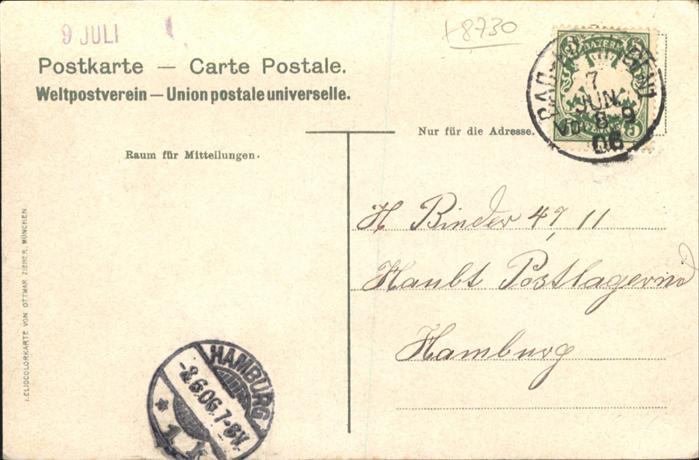 9 JULI
+8730
Postkarte — Carte Postale.
Weltpostverein — Union postale universelle.
BAYERN
7
JUN.
8 9
06
Nur für die Adresse.
Raum für Mitteilungen.
H Binder 49 11
Haubt Postlagerind
Hamburg
HELIOCOLORKARTE VON OTTMAR ZIEHER, MÜNCHEN
HAMBURG
-8.6.06.7-8V.
* 1.